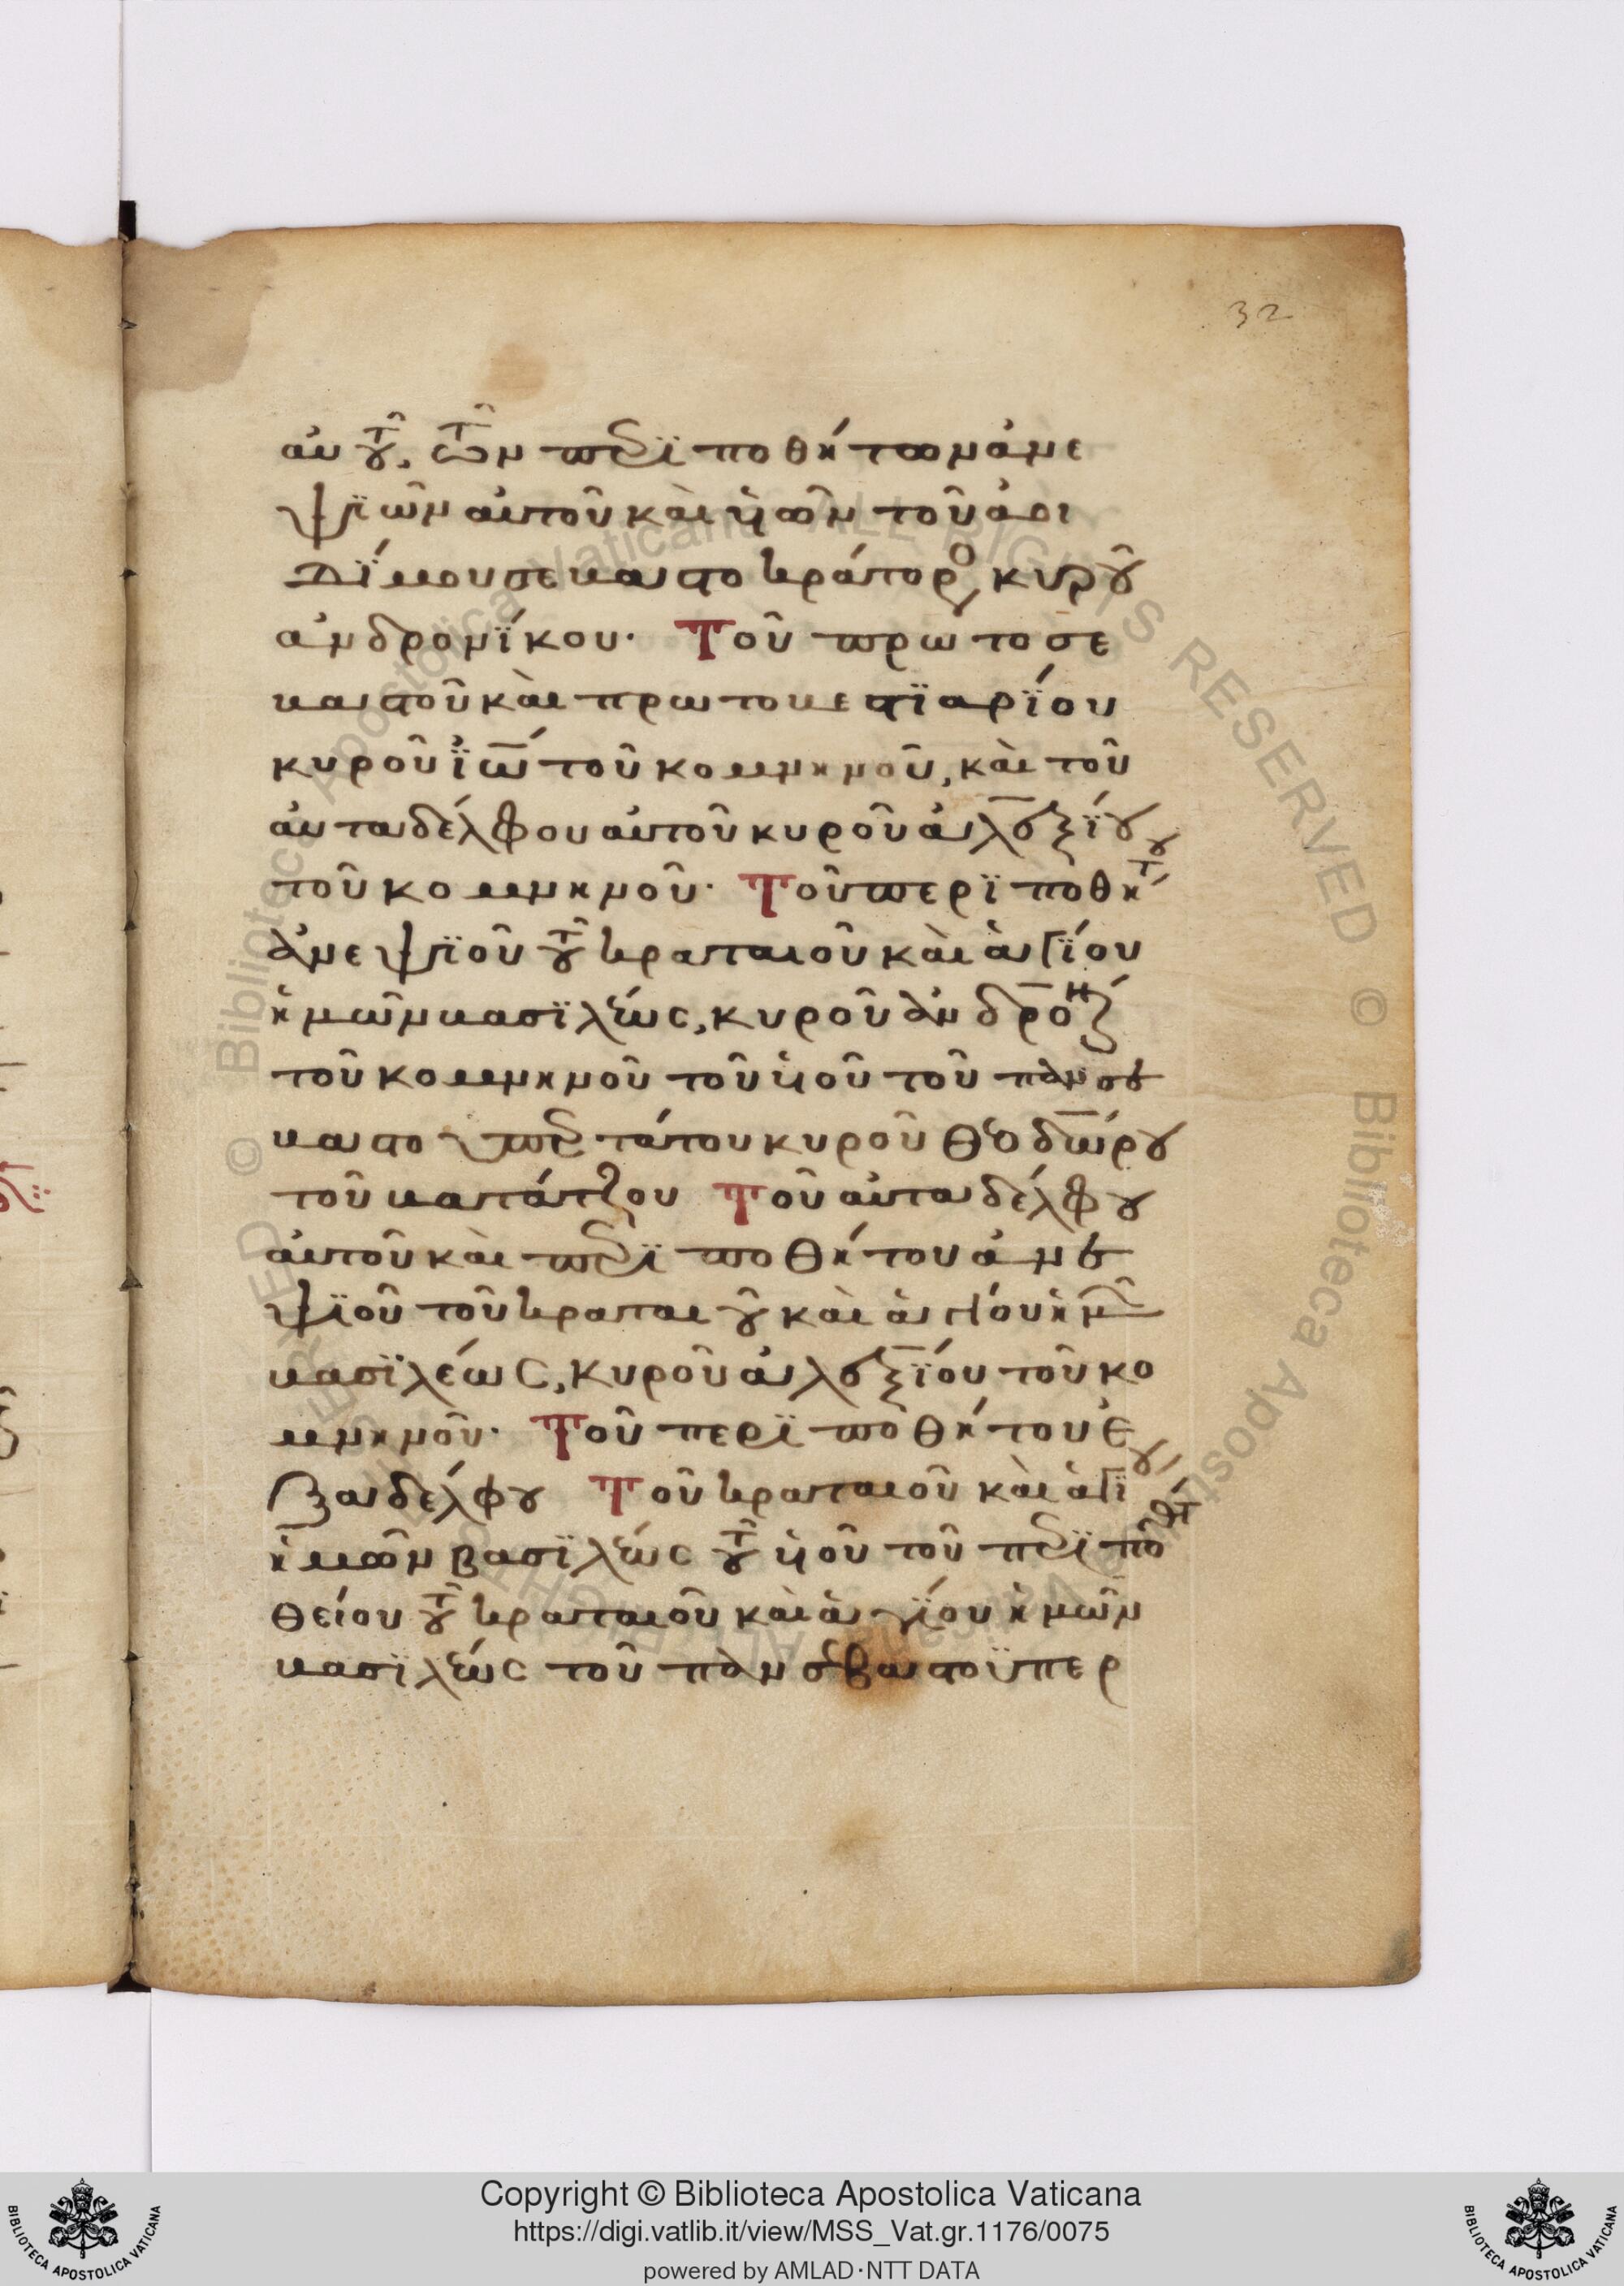 32
αὐτοῦ, τῶν περιποθήτων ἀνε
ψιῶν αὐτοῦ καὶ υἱῶν τοῦ ἀοι
δίμου σεβαστοκράτορος, κυροῦ
ἀνδρονίκου. Τοῦ πρωτοσε
βαστοῦ καὶ πρωτοβεστιαρίου
κυροῦ ἰω̅ τοῦ κομνηνοῦ, καὶ τοῦ
αὐταδέλφου αὐτοῦ κυροῦ ἀλεξίου
τοῦ κομνηνοῦ. Τοῦ περιποθήτου
ἀνεψιοῦ τοῦ κραταιοῦ καὶ ἁγίου
ἡμῶν βασιλέως, κυροῦ ἀνδρονίκου
τοῦ κομνηνοῦ τοῦ υἱοῦ τοῦ πανσε
βαστοϋπερτάτου κυροῦ θεοδώρου
τοῦ βατάτζου Τοῦ αὐταδέλφου
αὐτοῦ καὶ περιποθήτου ἀνε
ψιοῦ τοῦ κραταιοῦ καὶ ἁγίου ἡμῶν
βασιλέως, κυροῦ ἀλεξίου τοῦ κο
μνηνοῦ. Τοῦ περιποθήτου ἐ
ξαδέλφου Τοῦ κραταιοῦ καὶ ἁγίου
ἡμῶν βασιλέως τοῦ υἱοῦ τοῦ περιποθήτου
θείου τοῦ κραταιοῦ καὶ ἁγίου ἡμῶν
βασιλέως τοῦ πανσεβαστοϋπερ
© Biblioteca Apostolica Vaticana ALL RIGHTS RESERVED
Copyright © Biblioteca Apostolica Vaticana
https://digi.vatlib.it/view/MSS_Vat.gr.1176/0075
powered by AMLAD·NTT DATA
BIBLIOTECA APOSTOLICA VATICANA
BIBLIOTECA APOSTOLICA VATICANA